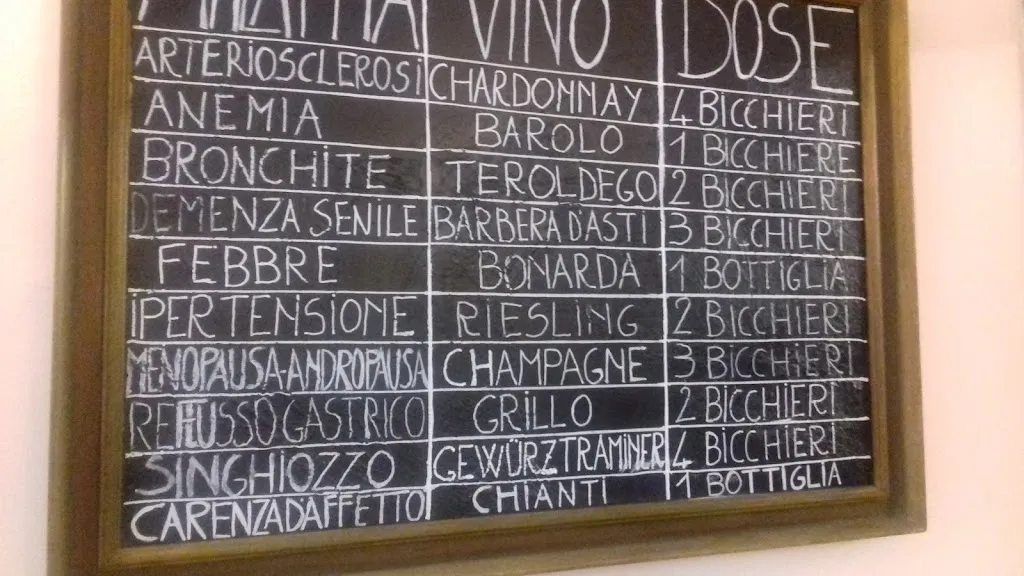 MALATTIA VINO DOSE
ARTERIOSCLEROSI CHARDONNAY 4 BICCHIERI
ANEMIA BAROLO 1 BICCHIERE
BRONCHITE TEROLDEGO 2 BICCHIERI
DEMENZA SENILE BARBERA D'ASTI 3 BICCHIERI
FEBBRE BONARDA 1 BOTTIGLIA
IPERTENSIONE RIESLING 2 BICCHIERI
MENOPAUSA-ANDROPAUSA CHAMPAGNE 3 BICCHIERI
REFLUSSO GASTRICO GRILLO 2 BICCHIERI
SINGHIOZZO GEWÜRZTRAMINER 4 BICCHIERI
CARENZA D'AFFETTO CHIANTI 1 BOTTIGLIA